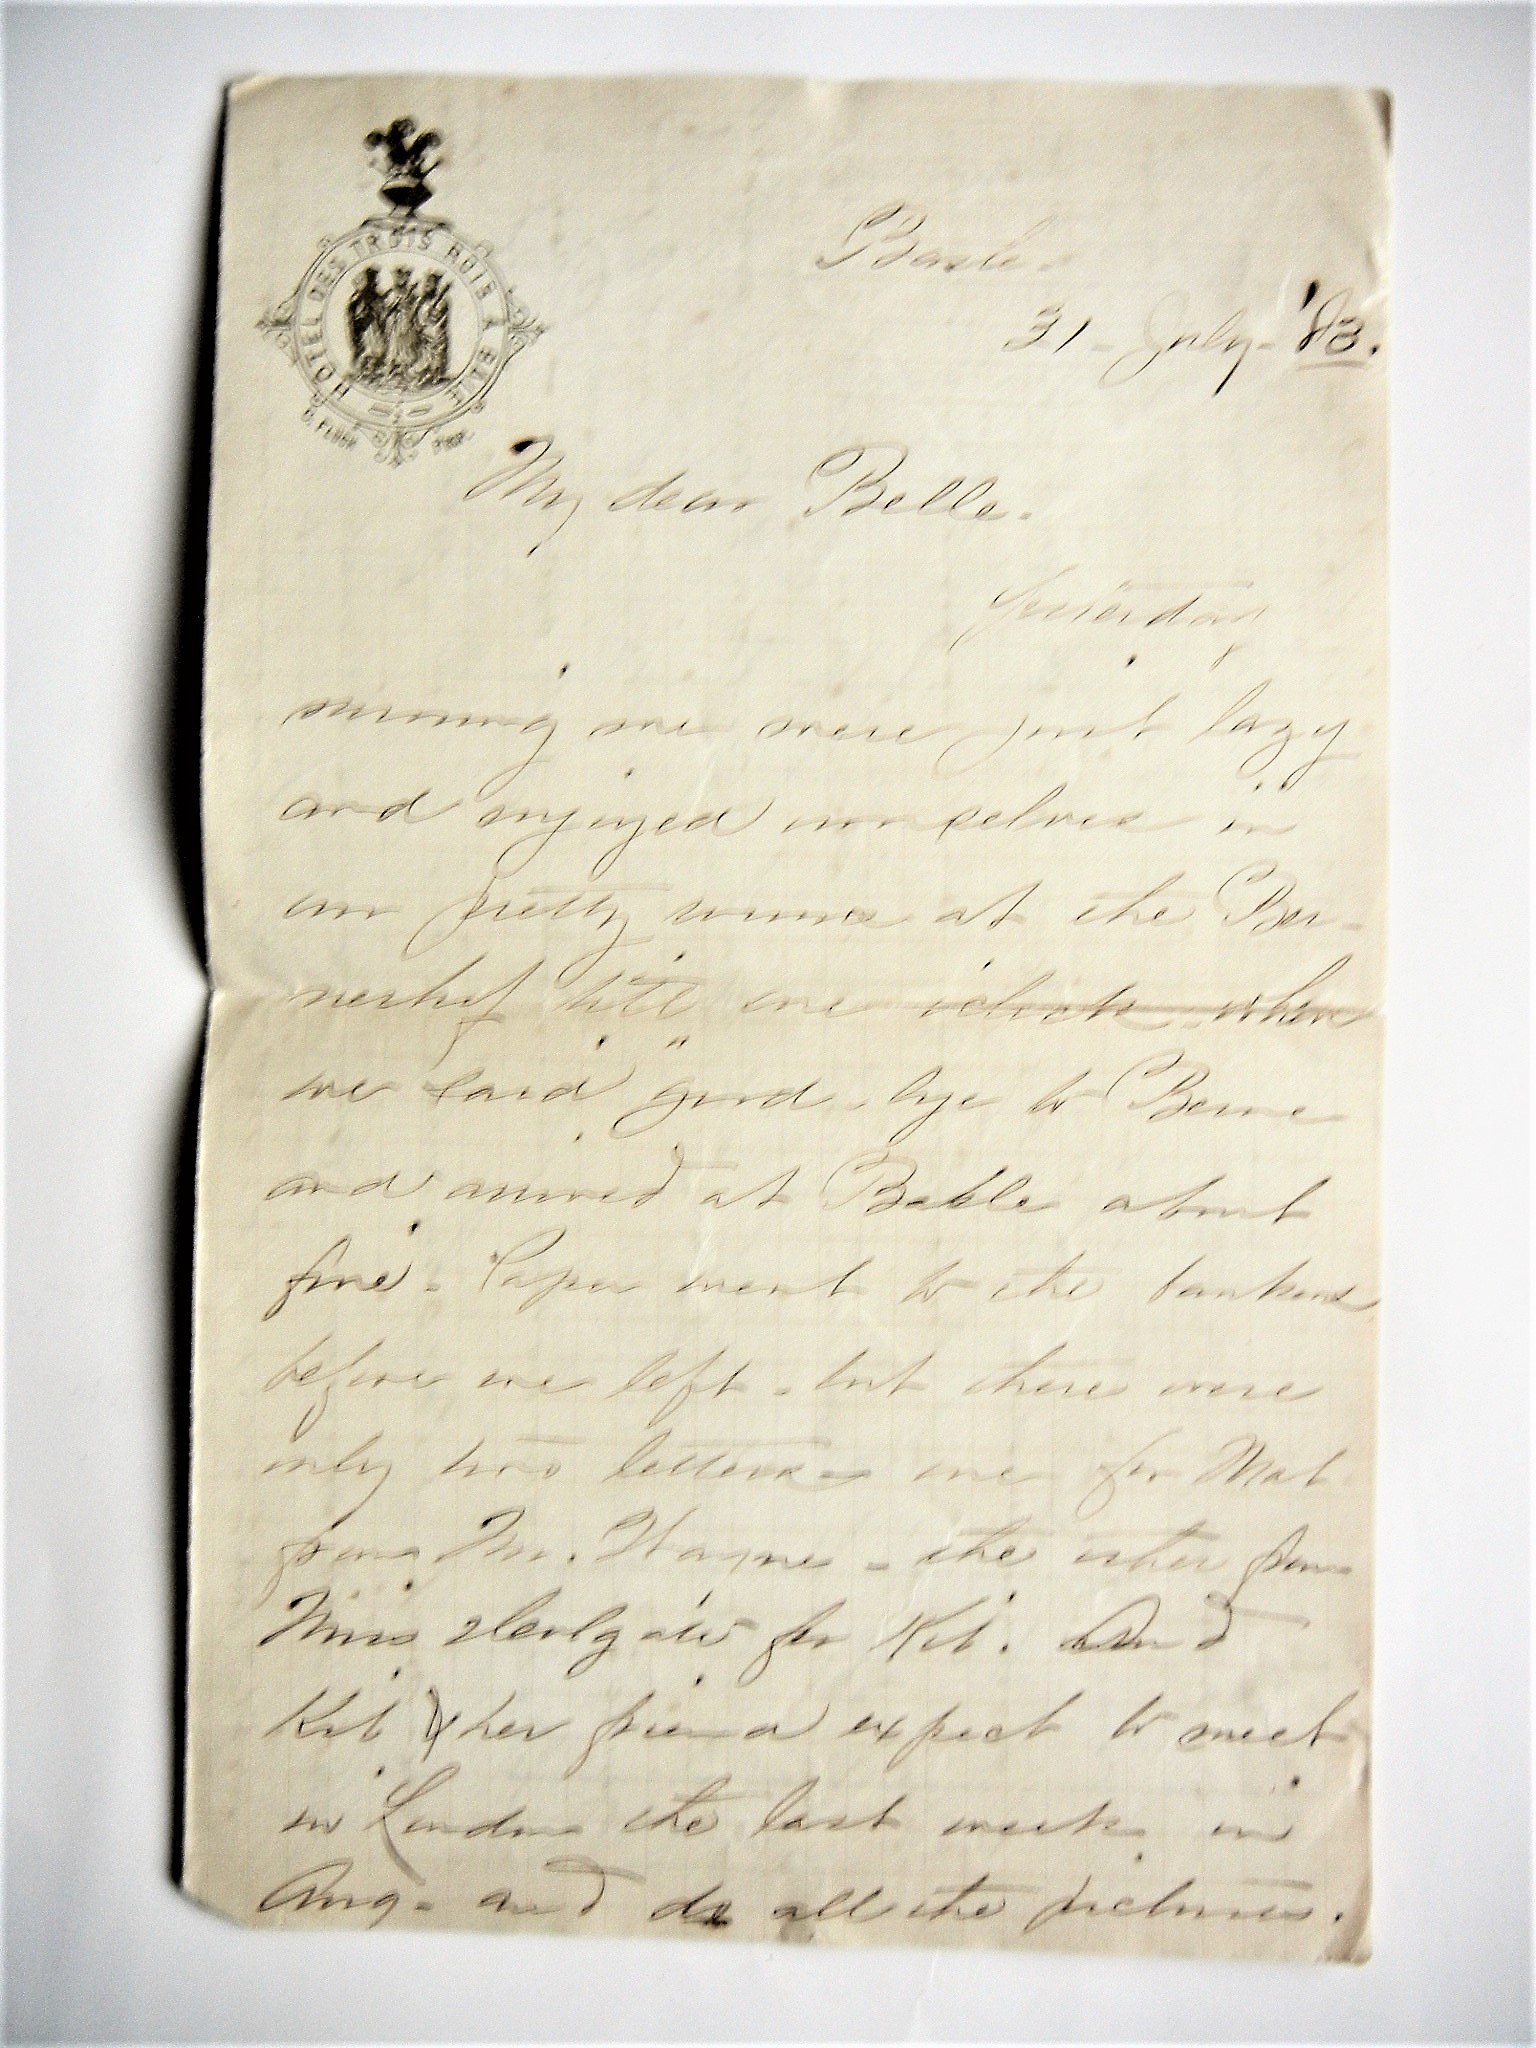 HOTEL DES TROIS ROIS À BÂLE
C. FLUCK PROP.
Basle.
31 - July - '83.
My dear Belle.
Yesterday
morning we were just lazy
and enjoyed ourselves in
our pretty rooms at the Ber-
nerhof till one o'clock, when
we said "good-bye to Berne
and arrived at Basle about
five. Papa went to the bankers
before we left, but there were
only two letters one for Mat
from Mr. Wayne - the other from
Miss for Kit. And
Kit & her friend expect to meet
in London the last week in
Aug. and do all the pictures.